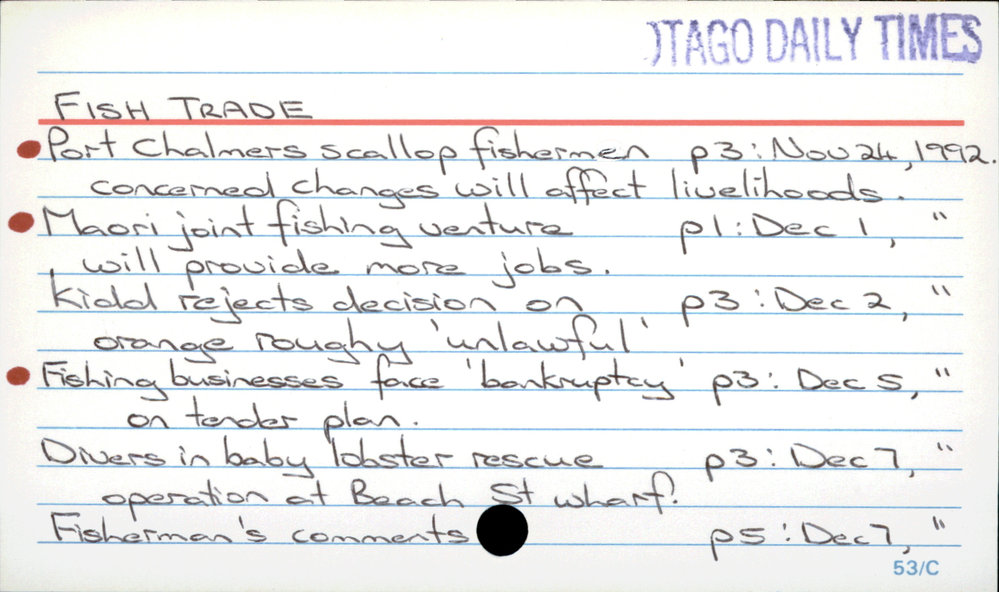 OTAGO DAILY TIMES
FISH TRADE
Port Chalmers scallop fishermen p3: Nov 24, 1992.
concerned changes will affect livelihoods.
Maori joint fishing venture p1: Dec 1, "
will provide more jobs.
Kidd rejects decision on p3: Dec 2, "
orange roughy 'unlawful'
Fishing businesses face 'bankruptcy' p3: Dec 5, "
on tender plan.
Divers in baby lobster rescue p3: Dec 7, "
operation at Beach St wharf:
Fisherman's comments p5: Dec 7, "
53/C